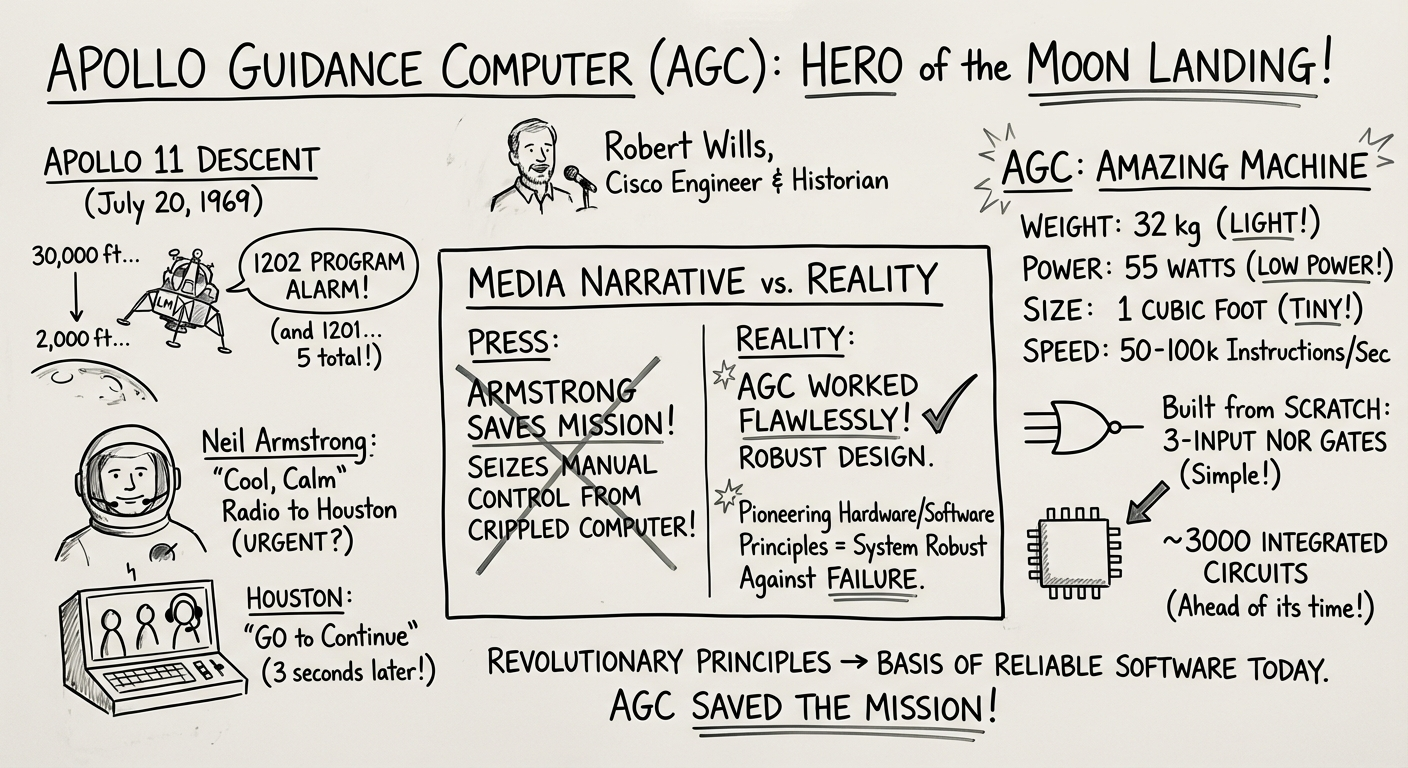 APOLLO GUIDANCE COMPUTER (AGC): HERO of the MOON LANDING!
APOLLO 11 DESCENT
(July 20, 1969)
30,000 ft...
2,000 ft...
LM
1202 PROGRAM
ALARM!
(and 1201...
5 total!)
Neil Armstrong:
"Cool, Calm"
Radio to Houston
(URGENT?)
HOUSTON:
"GO to Continue"
(3 seconds later!)
Robert Wills,
Cisco Engineer & Historian
MEDIA NARRATIVE vs. REALITY
PRESS:
ARMSTRONG
SAVES MISSION!
SEIZES MANUAL
CONTROL FROM
CRIPPLED COMPUTER!
REALITY:
AGC WORKED
FLAWLESSLY!
ROBUST DESIGN.
Pioneering Hardware/Software
Principles = System Robust
Against FAILURE.
AGC: AMAZING MACHINE
WEIGHT: 32 kg (LIGHT!)
POWER: 55 WATTS (LOW POWER!)
SIZE: 1 CUBIC FOOT (TINY!)
SPEED: 50-100k Instructions/Sec
Built from SCRATCH:
3-INPUT NOR GATES
(Simple!)
~3000 INTEGRATED
CIRCUITS
(Ahead of its time!)
REVOLUTIONARY PRINCIPLES → BASIS OF RELIABLE SOFTWARE TODAY.
AGC SAVED THE MISSION!